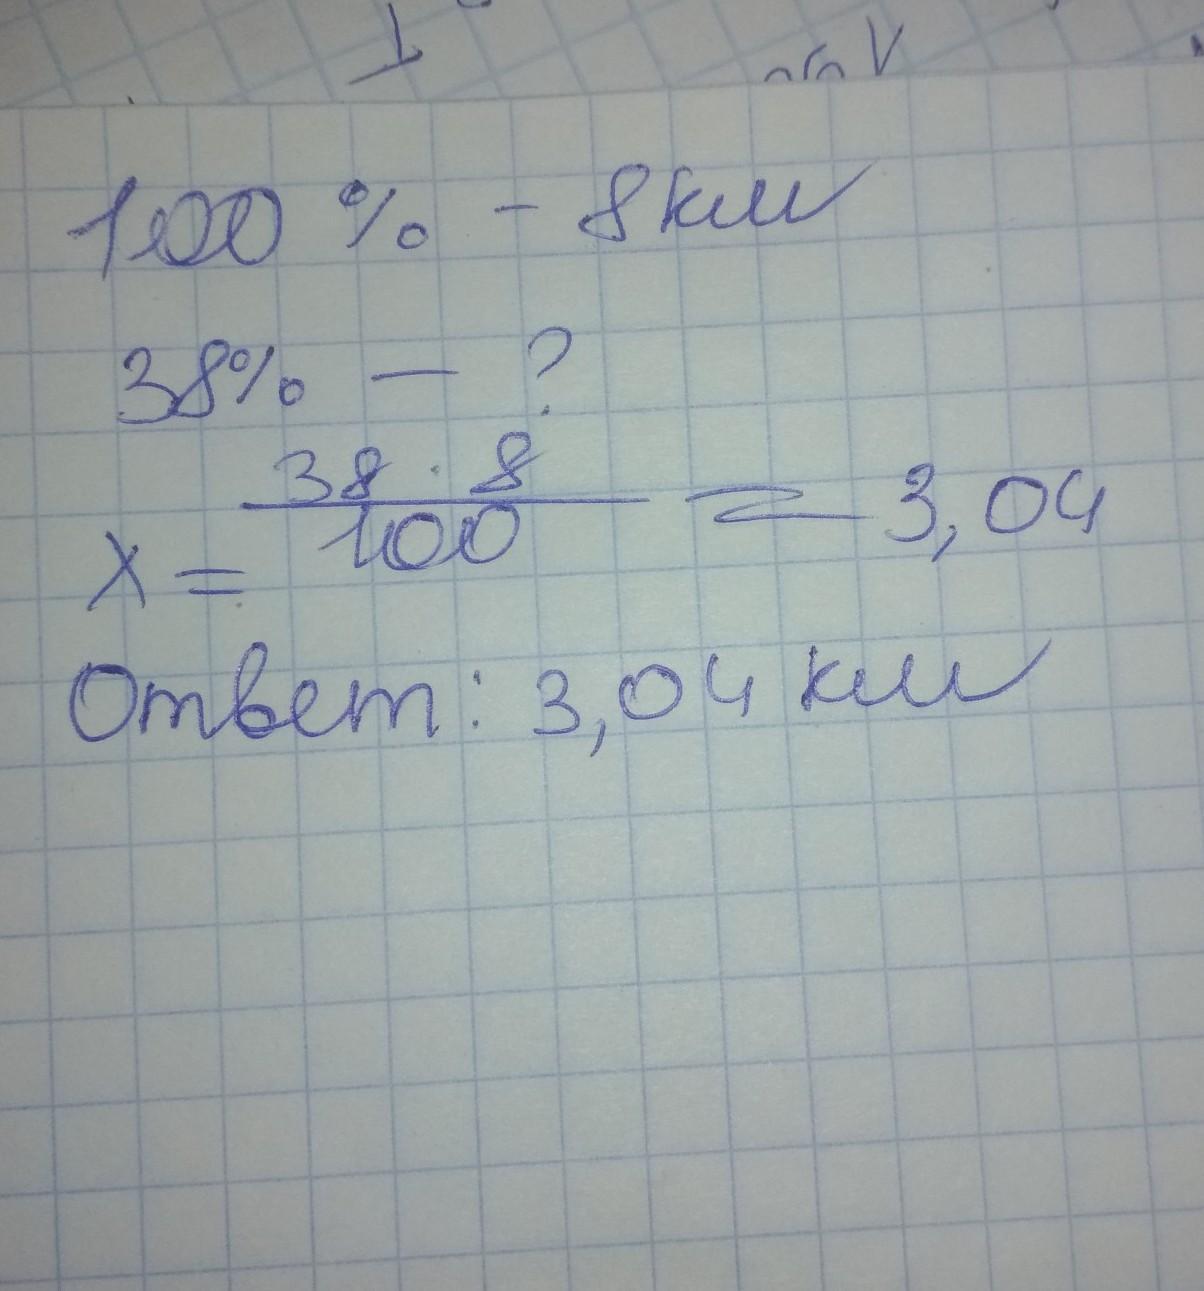 100 % - 8 км
38% — ?
x = 38 · 8 / 100 = 3,04
Ответ: 3,04 км